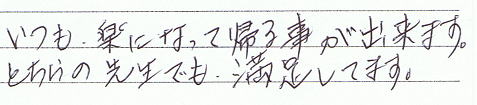 いつも、楽になって帰る事が出来ます。
どちらの先生でも、満足してます。